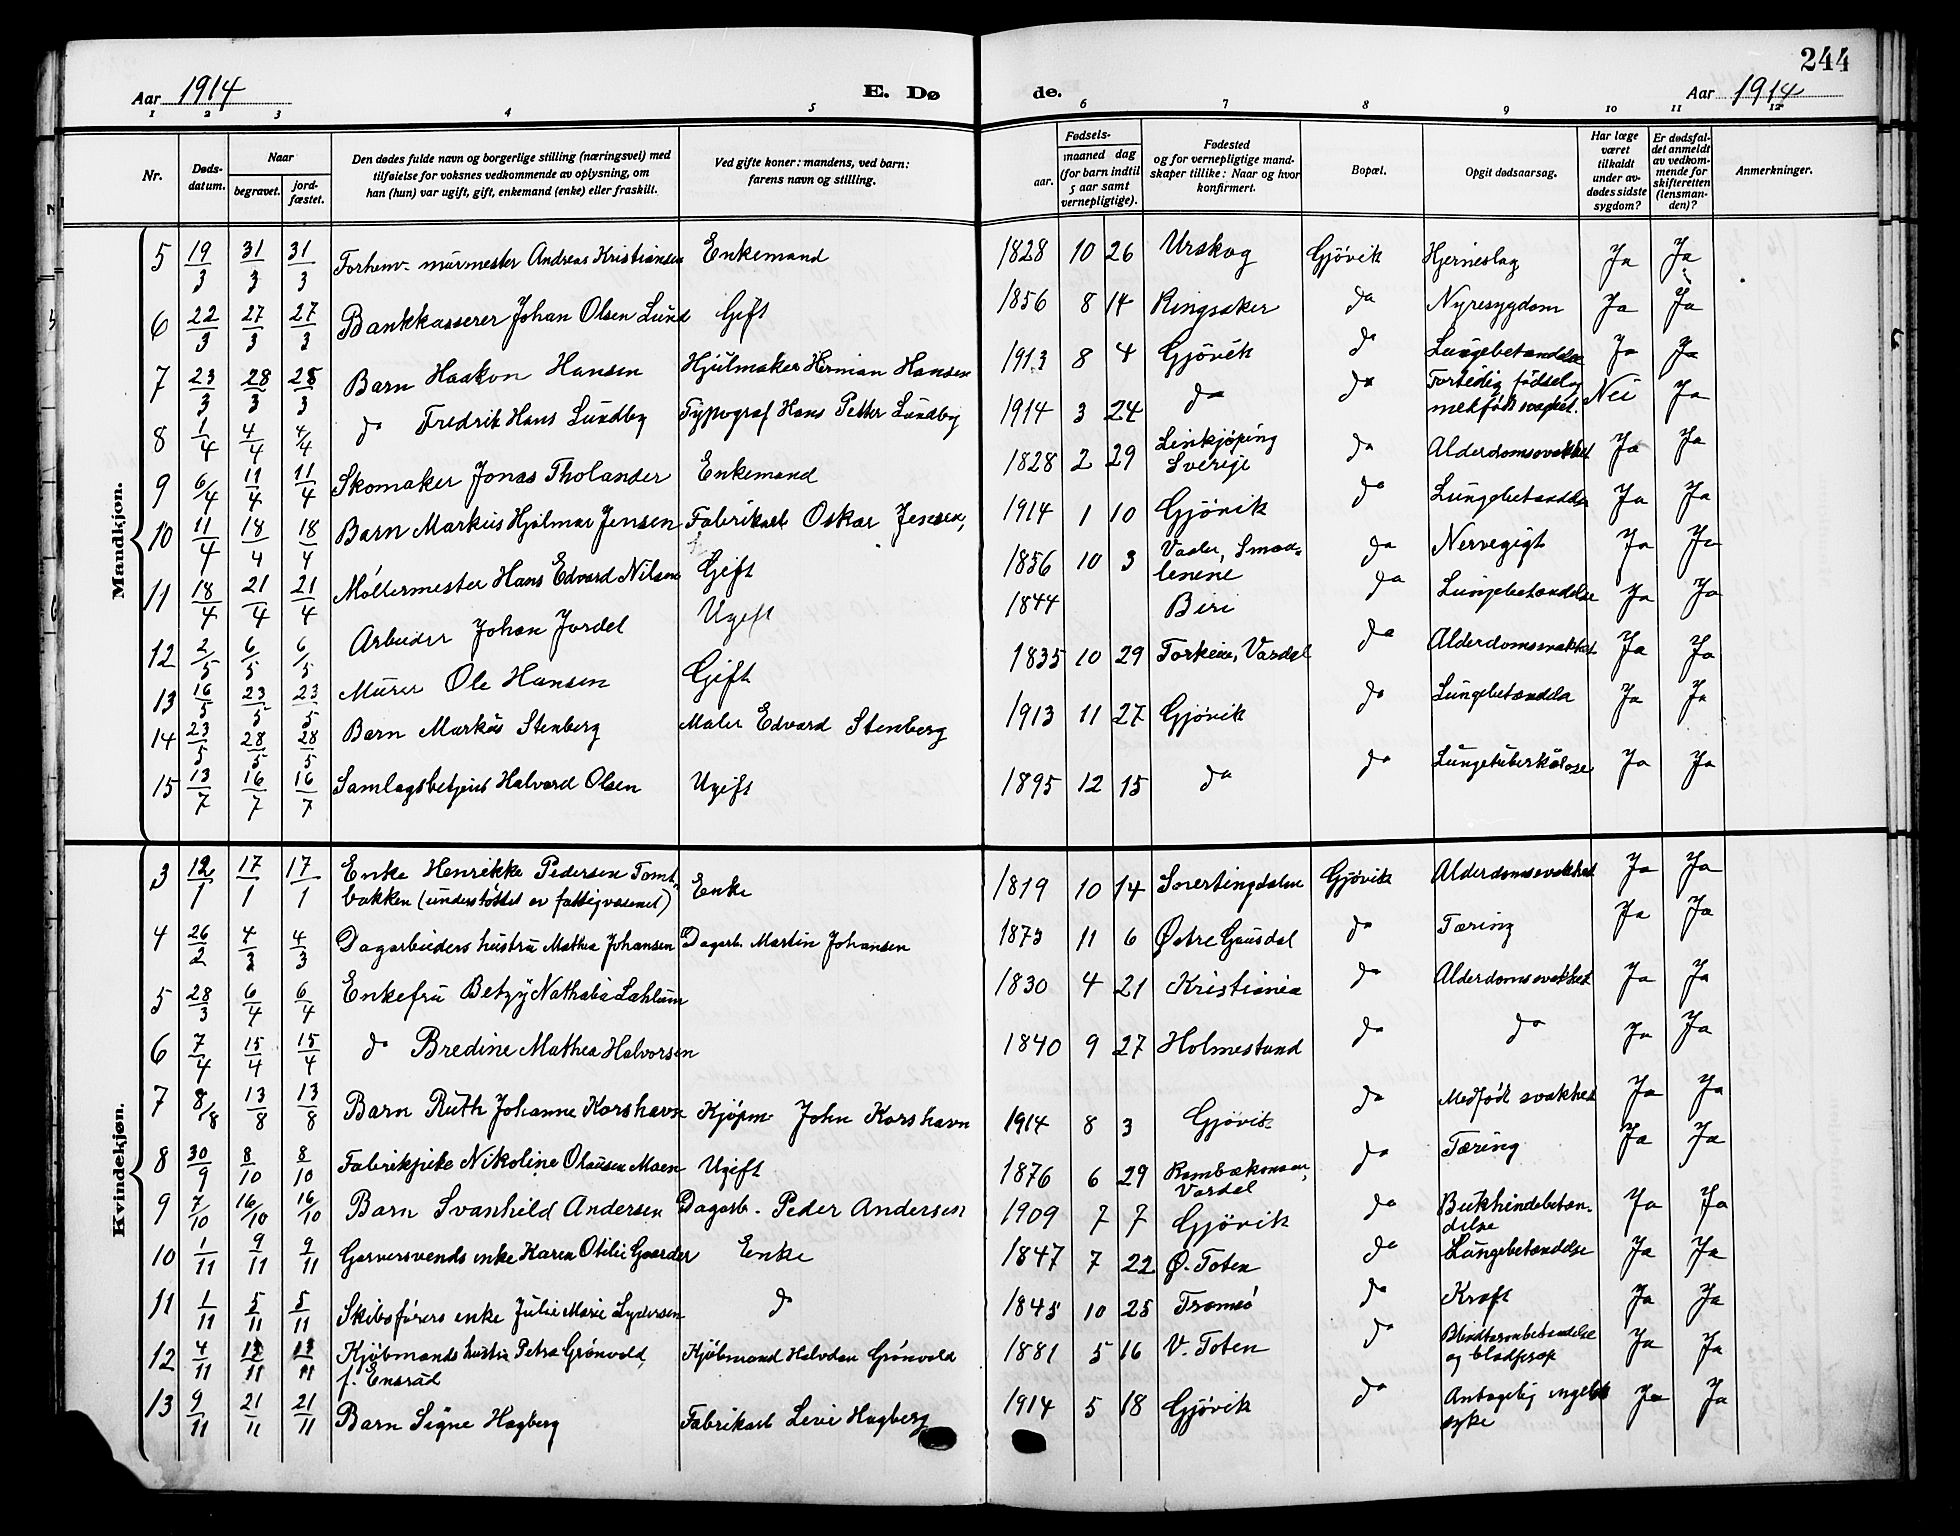 244
Aar 1914 E. Dø de. Aar 1914
1 2 3 4 5 6 7 8 9 10 11 12
Nr.
Døds-
datum.
Naar
begravet.
jord-
fæstet.
Den dødes fulde navn og borgerlige stilling (næringsvei) med
tilføielse for voksnes vedkommende av oplysning, om
han (hun) var ugift, gift, enkemand (enke) eller fraskilt.
Ved gifte koner: mandens, ved barn:
farens navn og stilling.
Fødsels-
aar.
maaned dag
(for barn indtil
5 aar samt
vernepligtige).
Fødested
og for vernepligtige mand-
skaper tillike: Naar og hvor
konfirmert.
Bopæl.
Opgit dødsaarsag.
Har læge
været
tilkaldt
under av-
dødes sidste
sygdom?
Er dødsfal-
det anmeldt
av vedkom-
mende for
skifteretten
(lensman-
den)?
Anmerkninger.
Mandkjøn.
5 19/3 31/3 31/3 Forhenv. murmester Andreas Kristiansen Enkemand 1828 10 26 Urskog Gjøvik Hjerneslag Ja Ja
6 22/3 27/3 27/3 Bankkasserer Johan Olsen Lund Gift 1856 8 14 Ringsaker do Nyresygdom Ja Ja
7 23/3 28/3 28/3 Barn Haakon Hansen Hjulmaker Herman Hansen 1913 8 4 Gjøvik do Lungebetændelse Ja Ja
8 1/4 4/4 4/4 do Fredrik Hans Lundby Typograf Hans Petter Lundby 1914 3 24 do do Fortidig fødsel og
medfødt svakhet. Nei Ja
9 6/4 11/4 11/4 Skomaker Jonas Tholander Enkemand 1828 2 29 Linkjøping
Sverige do Alderdomssvakhet Ja Ja
10 11/4 18/4 18/4 Barn Markus Hjalmar Jensen Fabrikarb. Oskar Jensen, 1914 1 10 Gjøvik do Lungebetændelse Ja Ja
11 18/4 21/4 21/4 Møllermester Hans Edvard Nilsen Gift 1856 10 3 Vaaler, Smaa-
lenene do Nervegigt Ja Ja
12 2/5 6/5 6/5 Arbeider Johan Jordet Ugift 1844 Biri do Lungebetændelse Ja Ja
13 16/5 23/5 23/5 Murer Ole Hansen Gift 1835 10 29 Vardal do Alderdomssvakhet Ja Ja
14 23/5 28/5 28/5 Barn Markus Stenberg Maler Edvard Stenberg 1913 11 27 Gjøvik do Lungebetændelse Ja Ja
15 13/7 16/7 16/7 Samlagsbetjent Halvard Olsen Ugift 1895 12 15 do do Lungetuberkulose Ja Ja
Kvindekjøn.
3 12/1 17/1 17/1 Enke Henrikke Pedersen Tomt-
bakken (understøttet av fattigvæsenet) Enke 1819 10 14 Snertingdalen Gjøvik Alderdomssvakhet Ja Ja
4 26/2 4/3 4/3 Dagarbeiders hustru Mathea Johansen Dagarb. Martin Johansen 1873 11 6 Østre Gausdal do Tæring Ja Ja
5 28/3 6/4 6/4 Enkefru Betzy Nathalia Lahlum 1830 4 21 Kristiania do Alderdomssvakhet Ja Ja
6 7/4 15/4 15/4 do Bredine Mathea Halvorsen 1840 9 27 Holmestrand do do Ja Ja
7 8/8 13/8 13/8 Barn Ruth Johanne Korshavn Kjøpm John Korshavn 1914 8 3 Gjøvik do Medfødt svakhet Ja Ja
8 30/9 8/10 8/10 Fabrikpike Nikoline Olausen Moen Ugift 1876 6 29
Vardal do Tæring Ja Ja
9 7/10 16/10 16/10 Barn Svanhild Andersen Dagarb. Peder Andersen 1909 7 7 Gjøvik do Bukhindebetæn-
delse Ja Ja
10 1/11 9/11 9/11 Garversvends enke Karen Otilie Gaarder Enke 1847 7 22 Ø. Toten do Lungebetændelse Ja Ja
11 1/11 5/11 5/11 Skibsførers enke Julie Marie Lydersen do 1845 10 25 Tromsø do Kræft Ja Ja
12 4/11 /11 /11 Kjøbmands hustru Petra Grønvold,
f. Ensrud Kjøbmand Halvdan Grønvold 1881 5 16 V. Toten do Blindtarmbetændelse
og blodprop Ja Ja
13 9/11 21/11 21/11 Barn Signe Hagberg Fabrikarb Levi Hagberg 1914 5 18 Gjøvik do Antagelig engelsk
syke Ja Ja